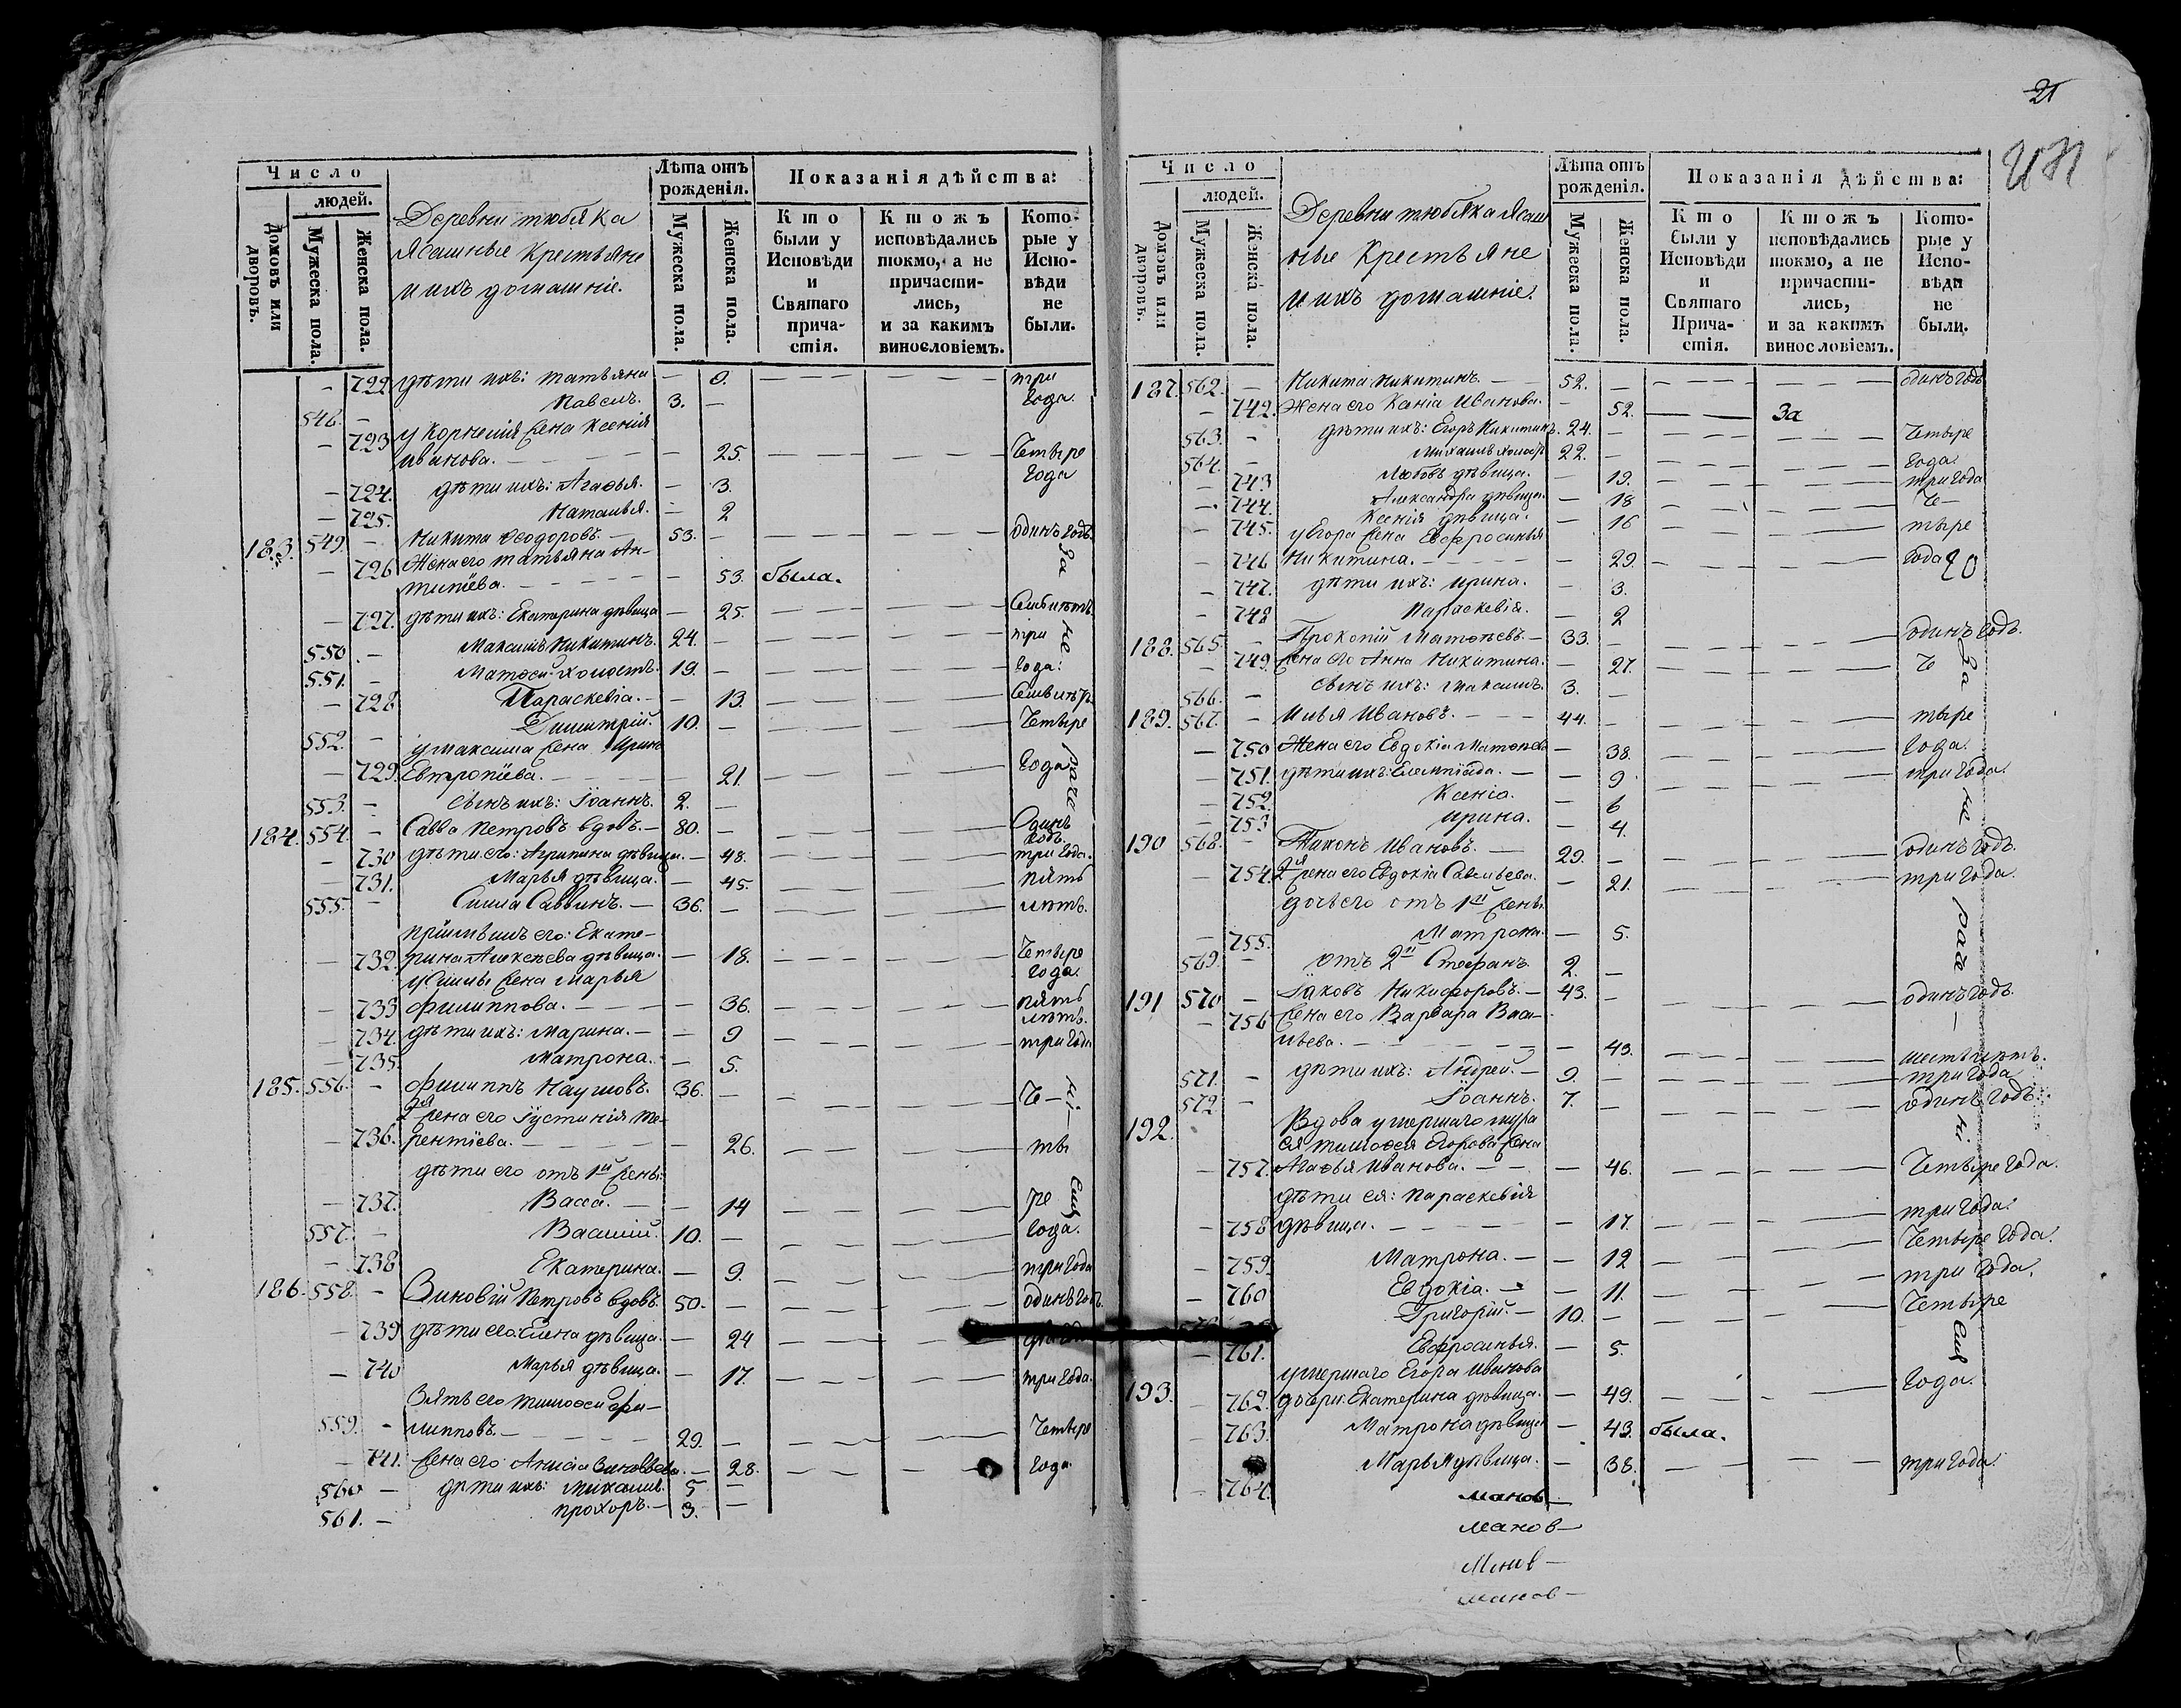 21
Число
людей.
Домовъ или дворовъ.
Мужеска пола.
Женска пола.
Деревни тюбяка
Ясашные Крестьяне
и ихъ домашніе.
Лѣта отъ рожденія.
Мужеска пола.
Женска пола.
Показанія дѣйства:
Кто были у Исповѣди и Святаго причастія.
Ктожъ исповѣдались токмо, а не причастились, и за какимъ винословіемъ.
Которые у Исповѣди не были.
— 722 дѣти ихъ: татьяна — 0. — — три
546. — Павелъ. 3. — года
— 723 у Корнелия жена Ксения
Иванова. — 25. — — Четыре
— 724. дѣти ихъ: Агафья. — 3. года
— 725. Наталья. — 2
183. 549. — Никита Ѳеодоровъ. — 53. — — одинъ годъ
— 726 Жена его татьяна Ан-
типіева. — 53. была.
— 727. дѣти ихъ: Екатерина дѣвица — 25. — — Семь лѣтъ
550. — Максимъ Никитинъ. 24. — — три
551. — Матѳей холостъ. 19. — — года.
— 728 Параскевіа. — 13. — — Семь лѣтъ
552. — Димитрій. 10. — — Четыре
у максима жена Ирина
— 729. Евтропіева. — 21. — — года
553. — сынъ ихъ: Іоаннъ. 2. —
184. 554. — Савва Петровъ вдовъ. — 80. — — Одинъ годъ.
— 730 дѣти его: Агрипина дѣвица. — 48. — — три года.
— 731. Марья дѣвица. — 45. — — пять
555. — Симла Саввинъ. — 36. — — лѣтъ.
пріимышъ его: Екате-
— 732. рина Алексѣева дѣвица. — 18. — — Четыре года.
у Симлы жена Марья
— 733 Филиппова. — 36. — — пять лѣтъ.
— 734. дѣти ихъ: Марина. — — 9 — — три года
— 735. Матрона. — 5.
185. 556. — Филиппъ Наумовъ. 36. — — Че-
2я жена его Іустинія Те-
— 736. рентіева. — 26. — — ты
дѣти его отъ 1й жены:
— 737. Васса. — — 14 — — ре
557. — Василій. 10. — — года.
— 738 Екатерина. — 9. — — три года
186. 558. — Зиновій Петровъ вдовъ. 50. — — одинъ годъ
— 739 дѣти его: Елена дѣвица. — 24 — —
— 740 Марья дѣвица. — 17. — — три года.
Зять его Тимоѳей Фи-
559. — липповъ. — 29. — — Четыре
— 741. жена его Анисіа Зиновьева. — 28. — — года.
560 — дѣти ихъ: Михаилъ. 5 —
561. — прохоръ. — 3. —
За не раче ні ем
Число
людей.
Домовъ или дворовъ.
Мужеска пола.
Женска пола.
Деревни тюбяка Ясаш
ные Крестьяне
и ихъ домашніе.
Лѣта отъ рожденія.
Мужеска пола.
Женска пола.
Показанія дѣйства:
Кто были у Исповѣди и Святаго Причастія.
Ктожъ исповѣдались токмо, а не причастились, и за какимъ винословіемъ.
Которые у Исповѣди не были.
187. 562. — Никита Никитинъ. — 52. — — одинъ годъ
— 742. Жена его Ксніа Иванова. — 52. — За
563. — дѣти ихъ: Егоръ Никитинъ. 24. — — Четыре
564. — Михаилъ холостъ 22. — — года.
— 743 Любовь дѣвица. — 19. — — три года
— 744. Александра дѣвица. — 18 — — Че-
— 745. Ксенія дѣвица. — 16 — — тыре
у Егора жена Евфросинья
— 746 Никитина. — 29. — — года
— 747. дѣти ихъ: Ирина. — 3.
— 748 Параскевія. — 2
188. 565. — Прокопій Матѳѣевъ. — 33. — — одинъ годъ.
— 749. жена его Анна Никитина. — 27. — — Че
566. — сынъ ихъ: Максимъ. 3. —
189. 567. — Илья Ивановъ. — 44. — — тыре
— 750 Жена его Евдокіа Матѳѣева — 38. — — года.
— 751. дѣти ихъ: Олимпіада. — — 9 — — три года.
— 752. Ксеніа. — 6
— 753 Ирина. — 4.
190 568. — Тихонъ Ивановъ. — 29. — — одинъ годъ.
— 754. 2я жена его Евдокіа Савельева. — 21. — — три года.
дочь его отъ 1й жены
— 755. Матрона. — 5.
569. — отъ 2й Стефанъ. 2. —
191 570 — Іаковъ Никифоровъ. — 43. — — одинъ годъ.
— 756 жена его Варвара Васи-
льева. — 43. — — шесть лѣтъ.
571. — дѣти ихъ: Андрей. — 9. — — три года
572. — Іоаннъ. 7. — — одинъ годъ.
192. Вдова умершаго мужа
ея Тимоѳея Егорова жена
— 757. Агафья Иванова. — — 46. — — Четыре года.
дѣти ея: Параскевія
— 758 дѣвица. — 17. — — три года.
— 759. Матрона. — — 12 — — Четыре года.
— 760 Евдокіа. — — 11. — — три года.
Григорій. — 10. — — Четыре
— 761. Евфросинья. — 5.
193. умершаго Егора Иванова
— 762. дочери: Екатерина дѣвица. — 49. — — года.
— 763. Матрона дѣвица — 43. была.
— 764. Марья дѣвица. — 38. — — три года
За не раче ні ем
Манов—
Манов—
Манов—
Манов—